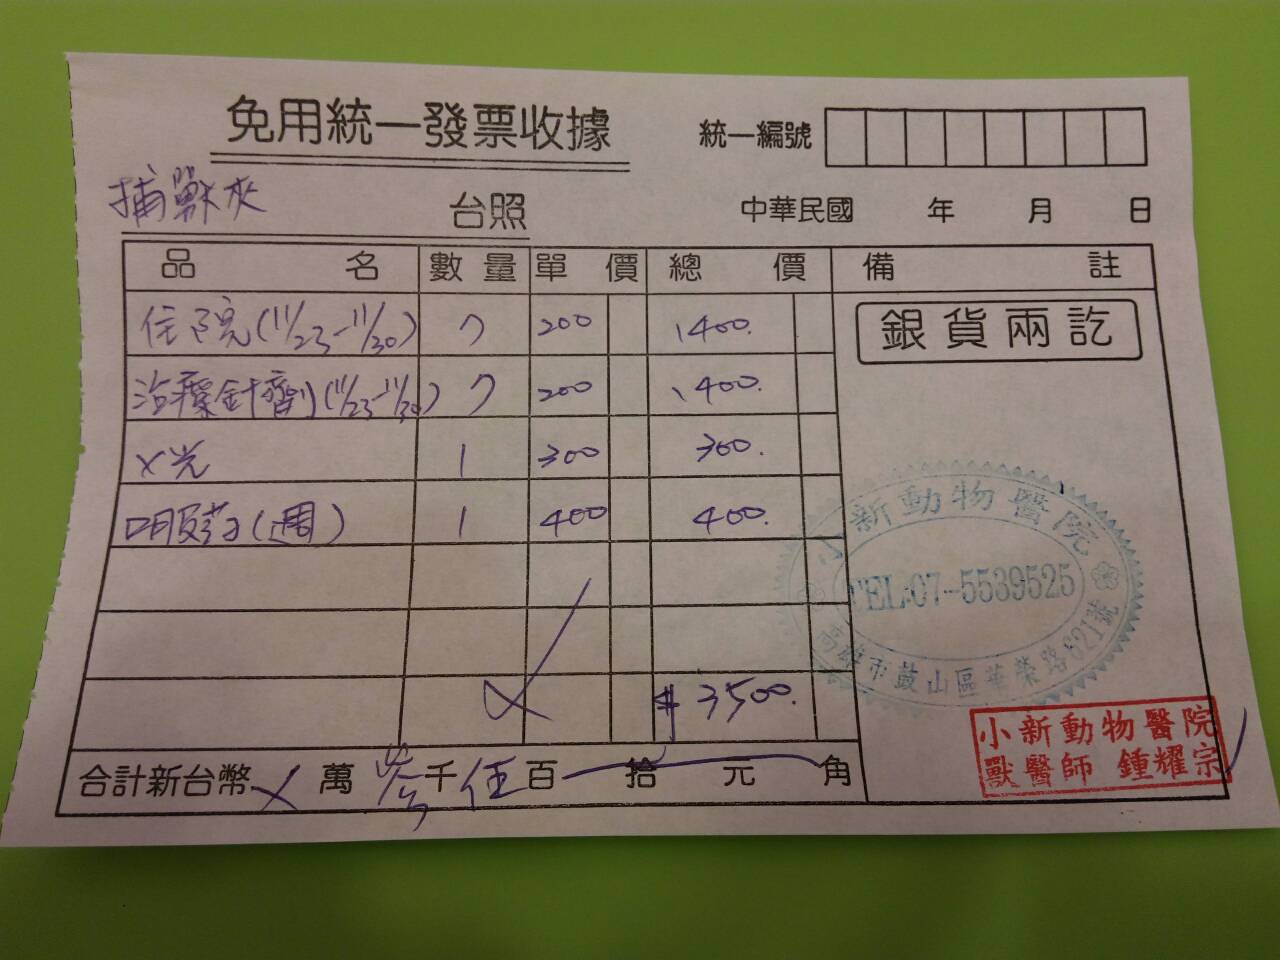 免用統一發票收據
統一編號
捕獸夾 台照
中華民國 年 月 日
品名 數量 單價 總價 備註
住院(11/23-11/30) 7 200 1400.
銀貨兩訖
治療針劑(11/23-11/30) 7 200 1400.
X光 1 300 300.
口服药(週) 1 400 400.
小新動物醫院
TEL:07-5539525
高雄市鼓山區華榮路621號
$3500.
小新動物醫院
獸醫師 鍾耀宗
合計新台幣 萬 參千伍百 拾 元 角